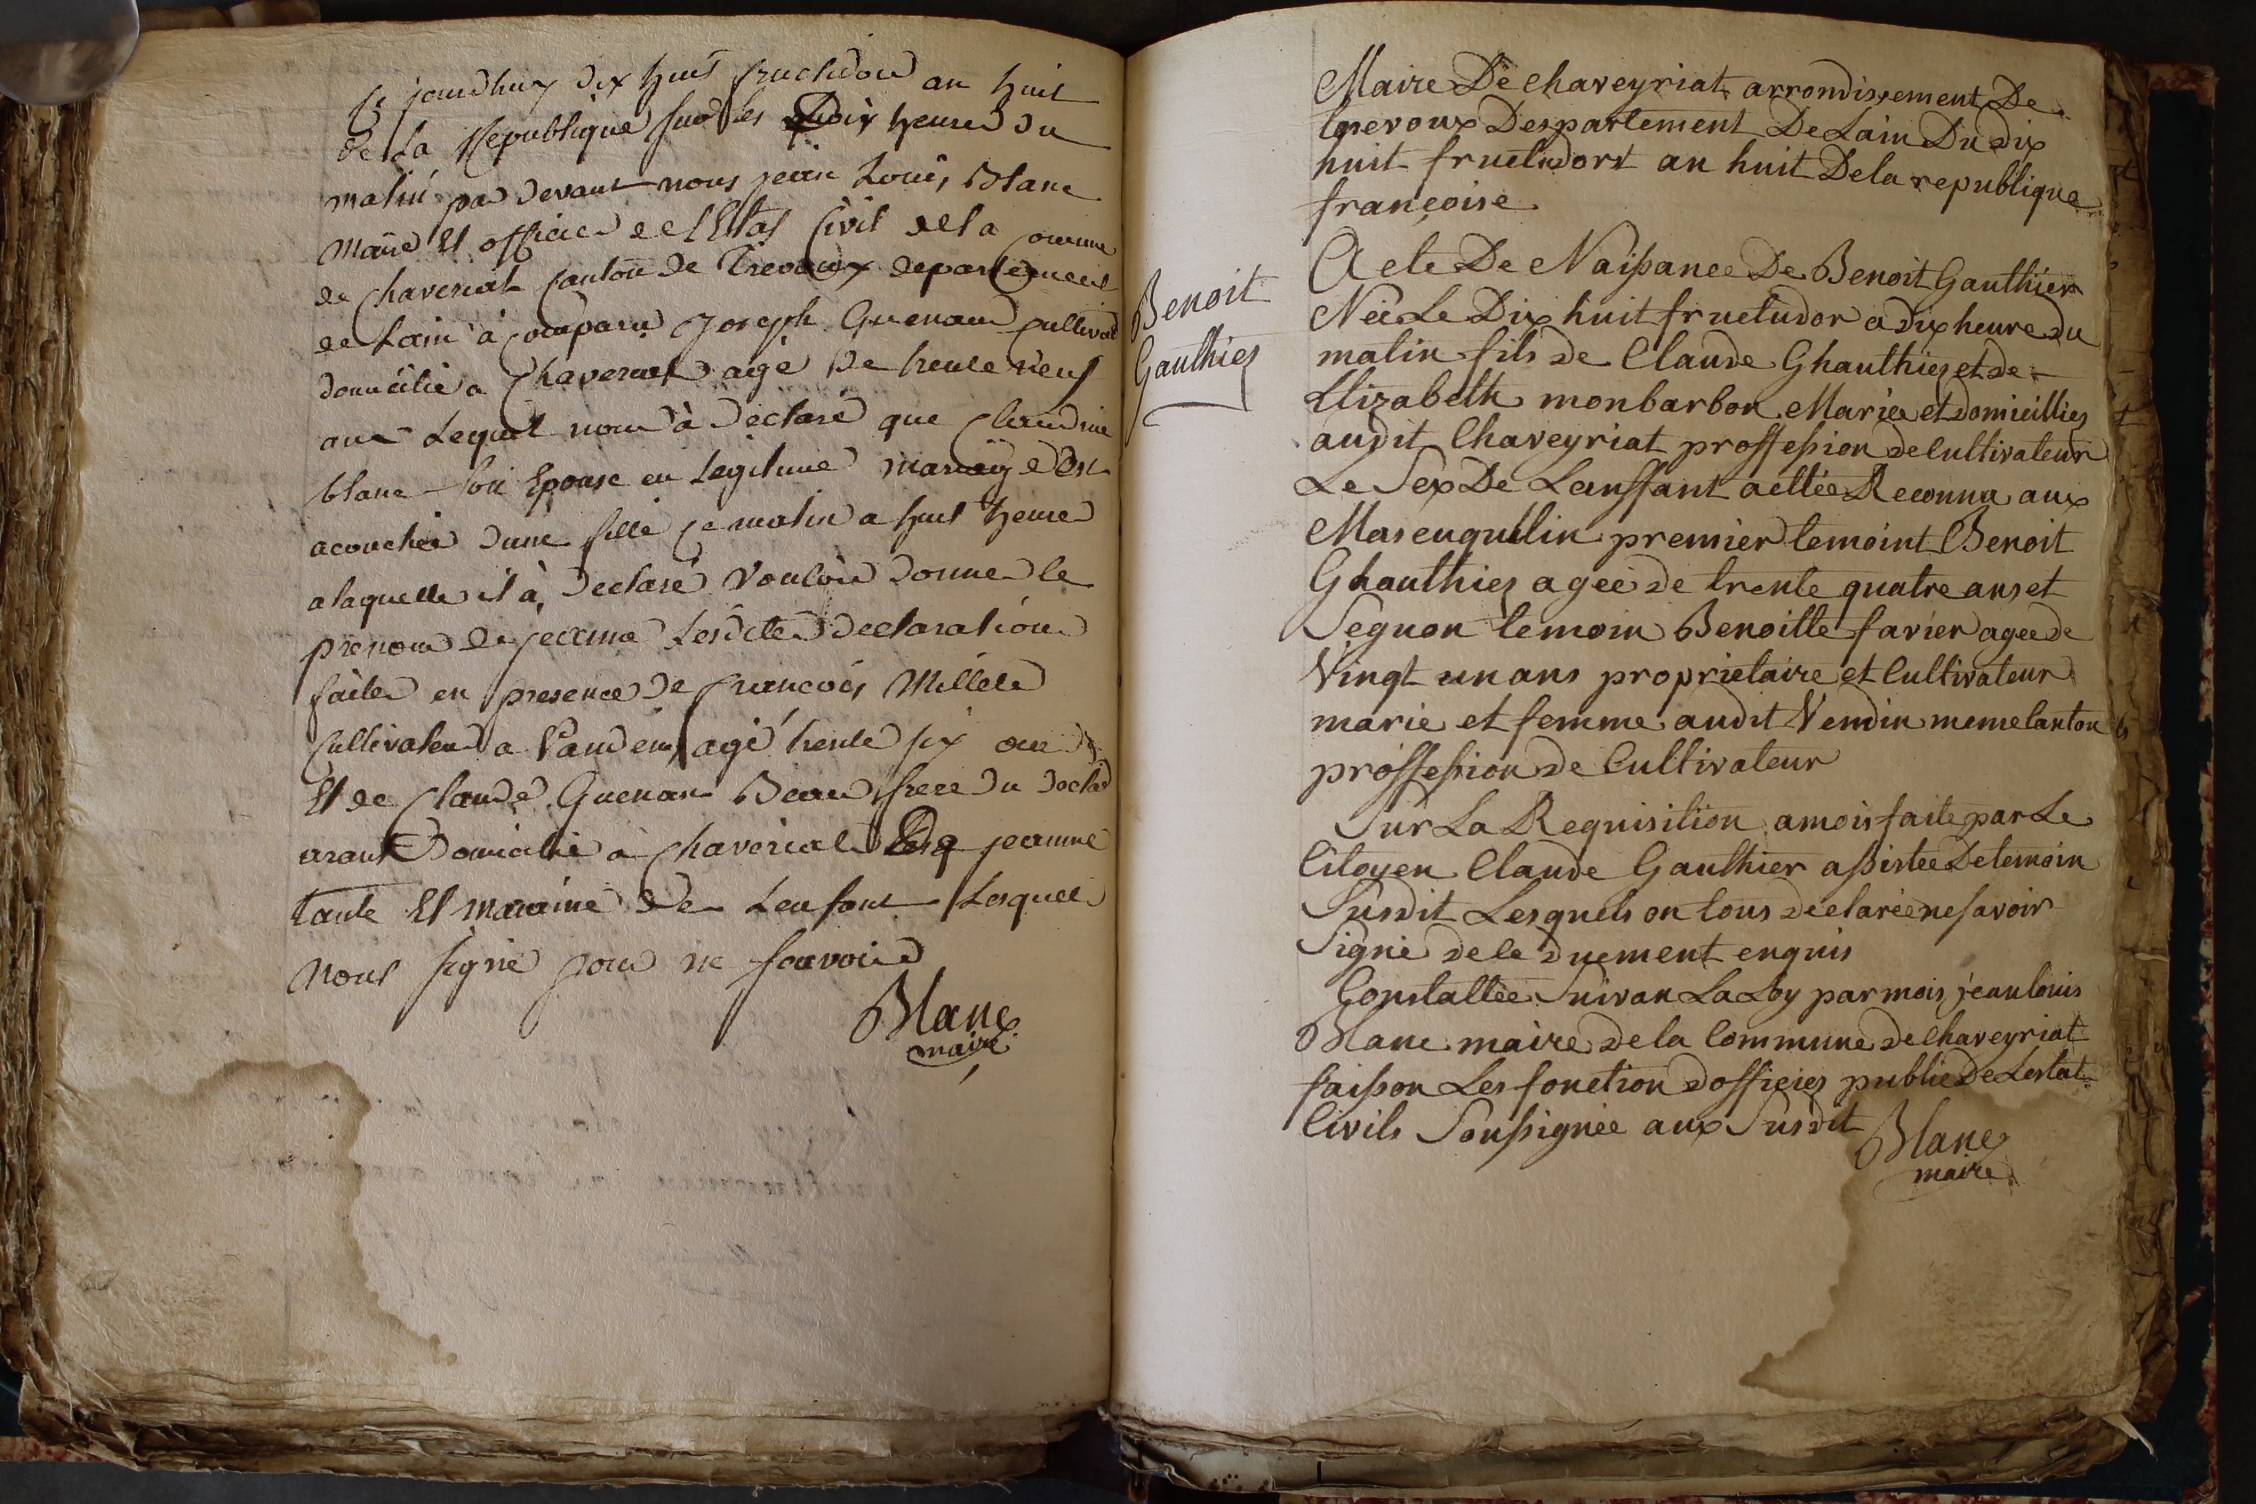 Ce jourdhuy dix huit fructidor an huit
de la Republique sur les dix heures du
matin par devant nous jean Louis Blanc
maire Et officier de l'Etat Civil de la comune
de chaveriat canton de Trevoux departement
de Lain à comparu joseph Guenau cultivat
domicilié a chaveriat agé de trente neuf
ans Lequel nous à declaré que claudine
blanc son Epouse en legitime mariage Est
acouchée dune fille ce matin a huit heures
a laquelle il à declaré vouloir donner le
prenom de jeanne Lesdites declarations
faites en presence de francois Millet
cultivateur a Vandeins agé trente six ans
Et de claude Guenau Beau frere du declar
arant Domicilié a chaveriat jeanne
tante Et maraine de Lenfant Lesquels
nont signé pour ne scavoir
Blanc
maire
Maire De chaveyriat arrondissement De
trevoux Despartement De Lain Du dix
huit fructudort an huit De la republique
françoise
Benoit
Gauthier
Acte De Naissance De Benoit Gauthier
Née Le Dix huit fructudor a dix heure du
matin fils de Claude Ghauthier et de
Elizabeth monbarbon Mariée et domicillies
audit Chaveyriat proffession de Cultivateur
Le Sex De Lanffant aettée Reconnu aux
Mascuqulin premier temoint Benoit
Ghauthier ageé de trente quatre ans et
Segnon temoin Benoitte favier agee de
Vingt un ans proprietaire et Cultivateur
marie et femme audit Vendin meme Canton
proffession de Cultivateur
Sur La Requisition a mois faite par Le
Citoyen Claude Gauthier assistée De temoin
Susdit Lesquels on tous declarée ne savoir
Signé de ce duement enquis
Constattée Suivan La Loy par mois jean louis
Blanc maire de la Commune de Chaveyriat
faisson Les fonction dofficier public De Lestat
Civils Soussignée aux Susdit
Blanc
maire